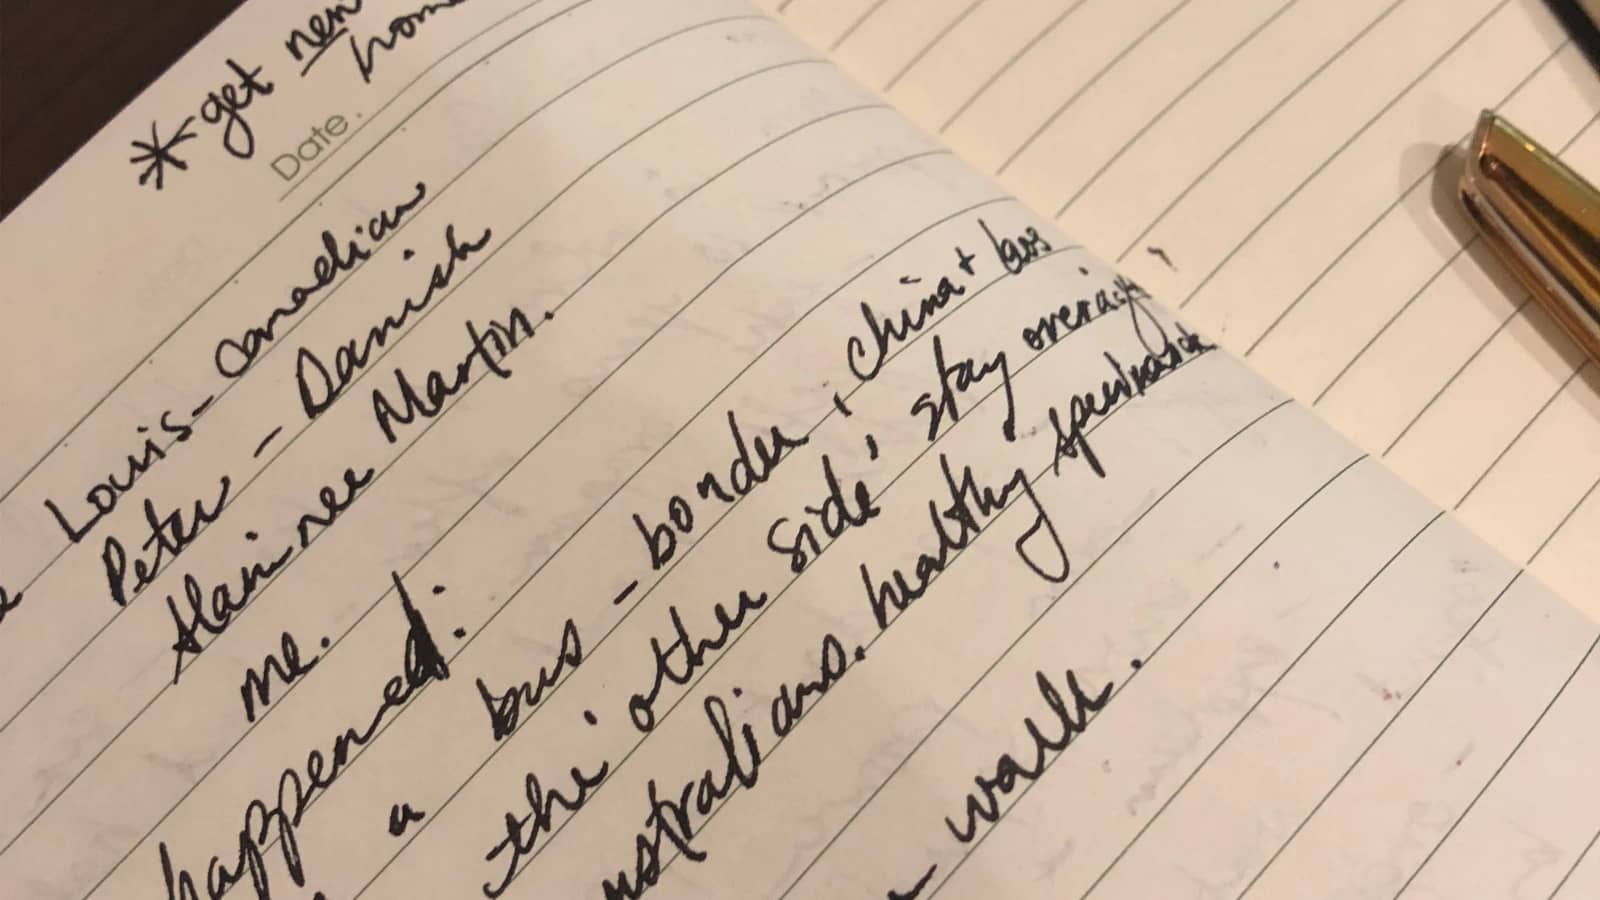 *-get nen
hom
Date.
Louis- Canadian
Peter - Danish
Alain nee Martin.
me.
happened:
a bus - border, china + laos
the 'other side', stay overnight
ustralians. healthy
walk.